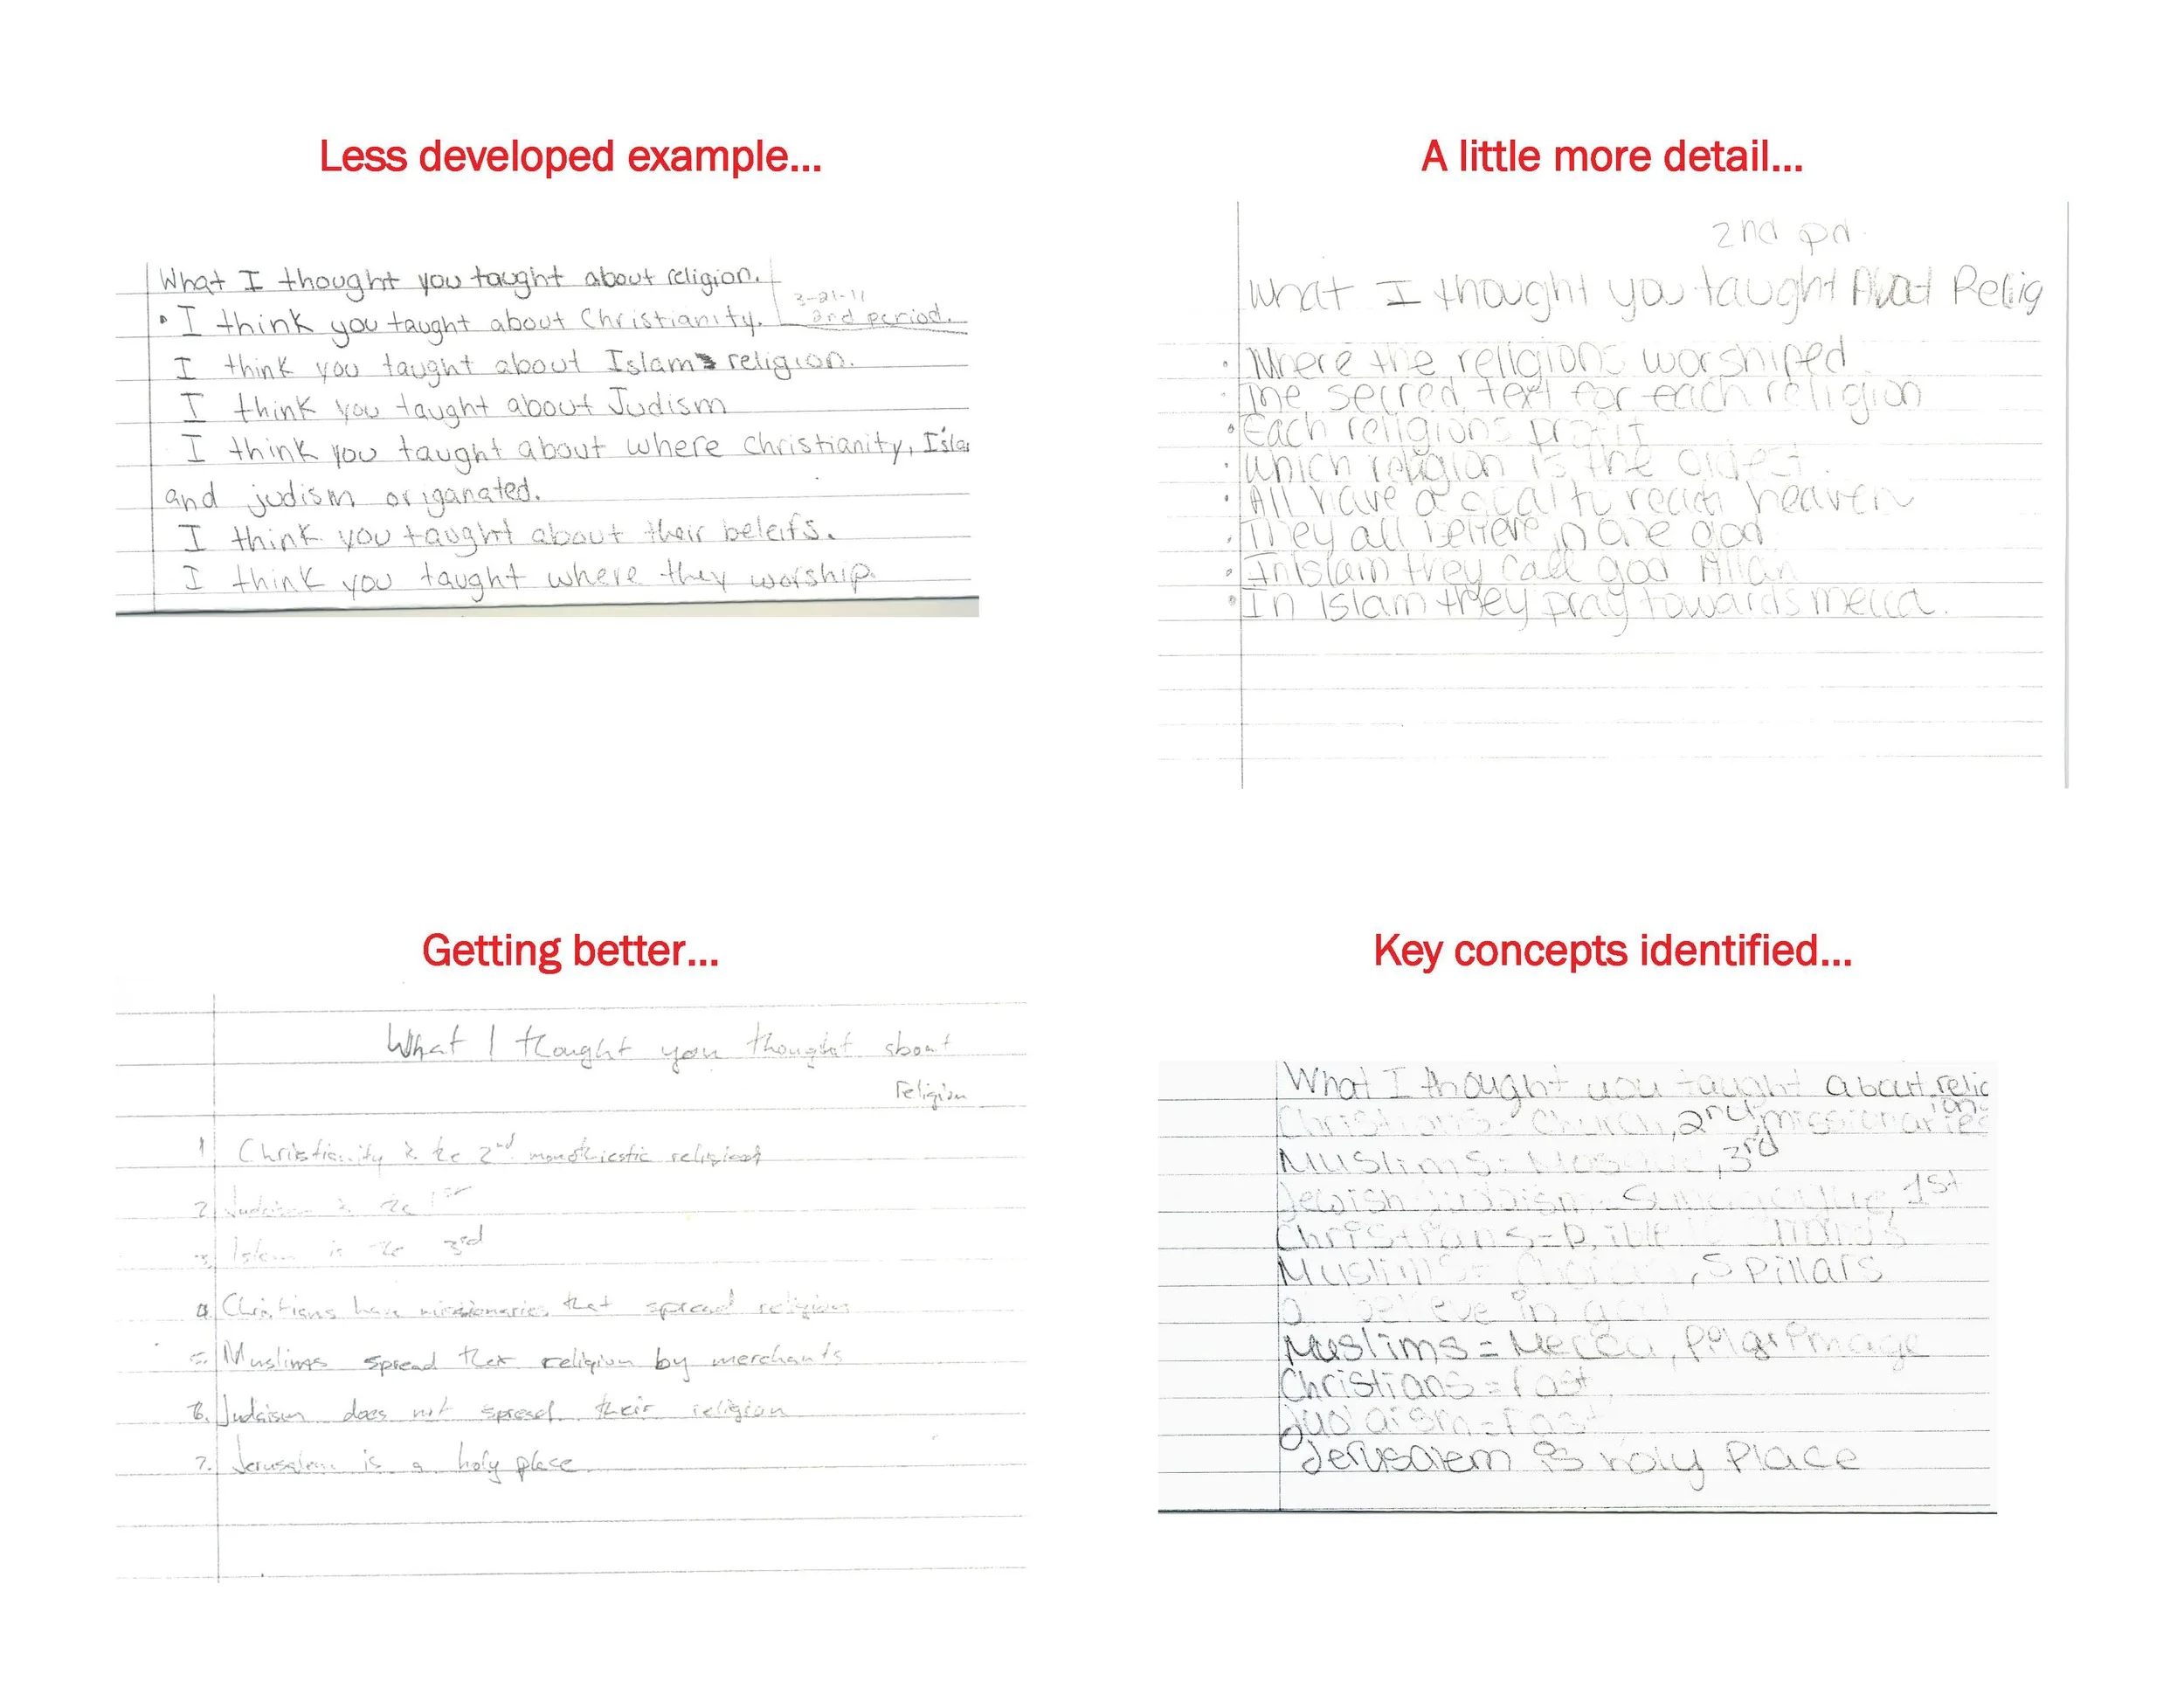 Less developed example...
What I thought you taught about religion.
3-21-11
2nd period.
• I think you taught about Christianity.
I think you taught about Islam religion.
I think you taught about Judism
I think you taught about where christianity, Isla
and judism origanated.
I think you taught about their beleifs.
I think you taught where they worship.
A little more detail...
2nd pd.
What I thought you taught About Relig
• Where the religions worshiped
• The secred text for each religion
• Each religions profit
• which religion is the oldest.
• All have a goal to reach heaven
• They all believe in one god
• In Islam they call god Allah
• In Islam they pray towards mecca.
Getting better...
What I thought you thought about
religion
1 Christianity is the 2nd monothiestic
2. Judaism is the 1st
3. Islam is the 3rd
4. Christians have missionaries that spread religion
5. Muslims spread their religion by merchants
6. Judaism does not spread their religion
7. Jerusalem is a holy place
Key concepts identified...
What I thought you taught about relig
ion
Christians = Church, 2nd, missionaries
Muslims = 3rd
Jewish Judaism = 1st
Christians =
Muslims = , 5 Pillars
believe in god
Muslims = Mecca, Pilgrimage
Christians = fast
Judaism = Fast
Jerusalem is holy Place